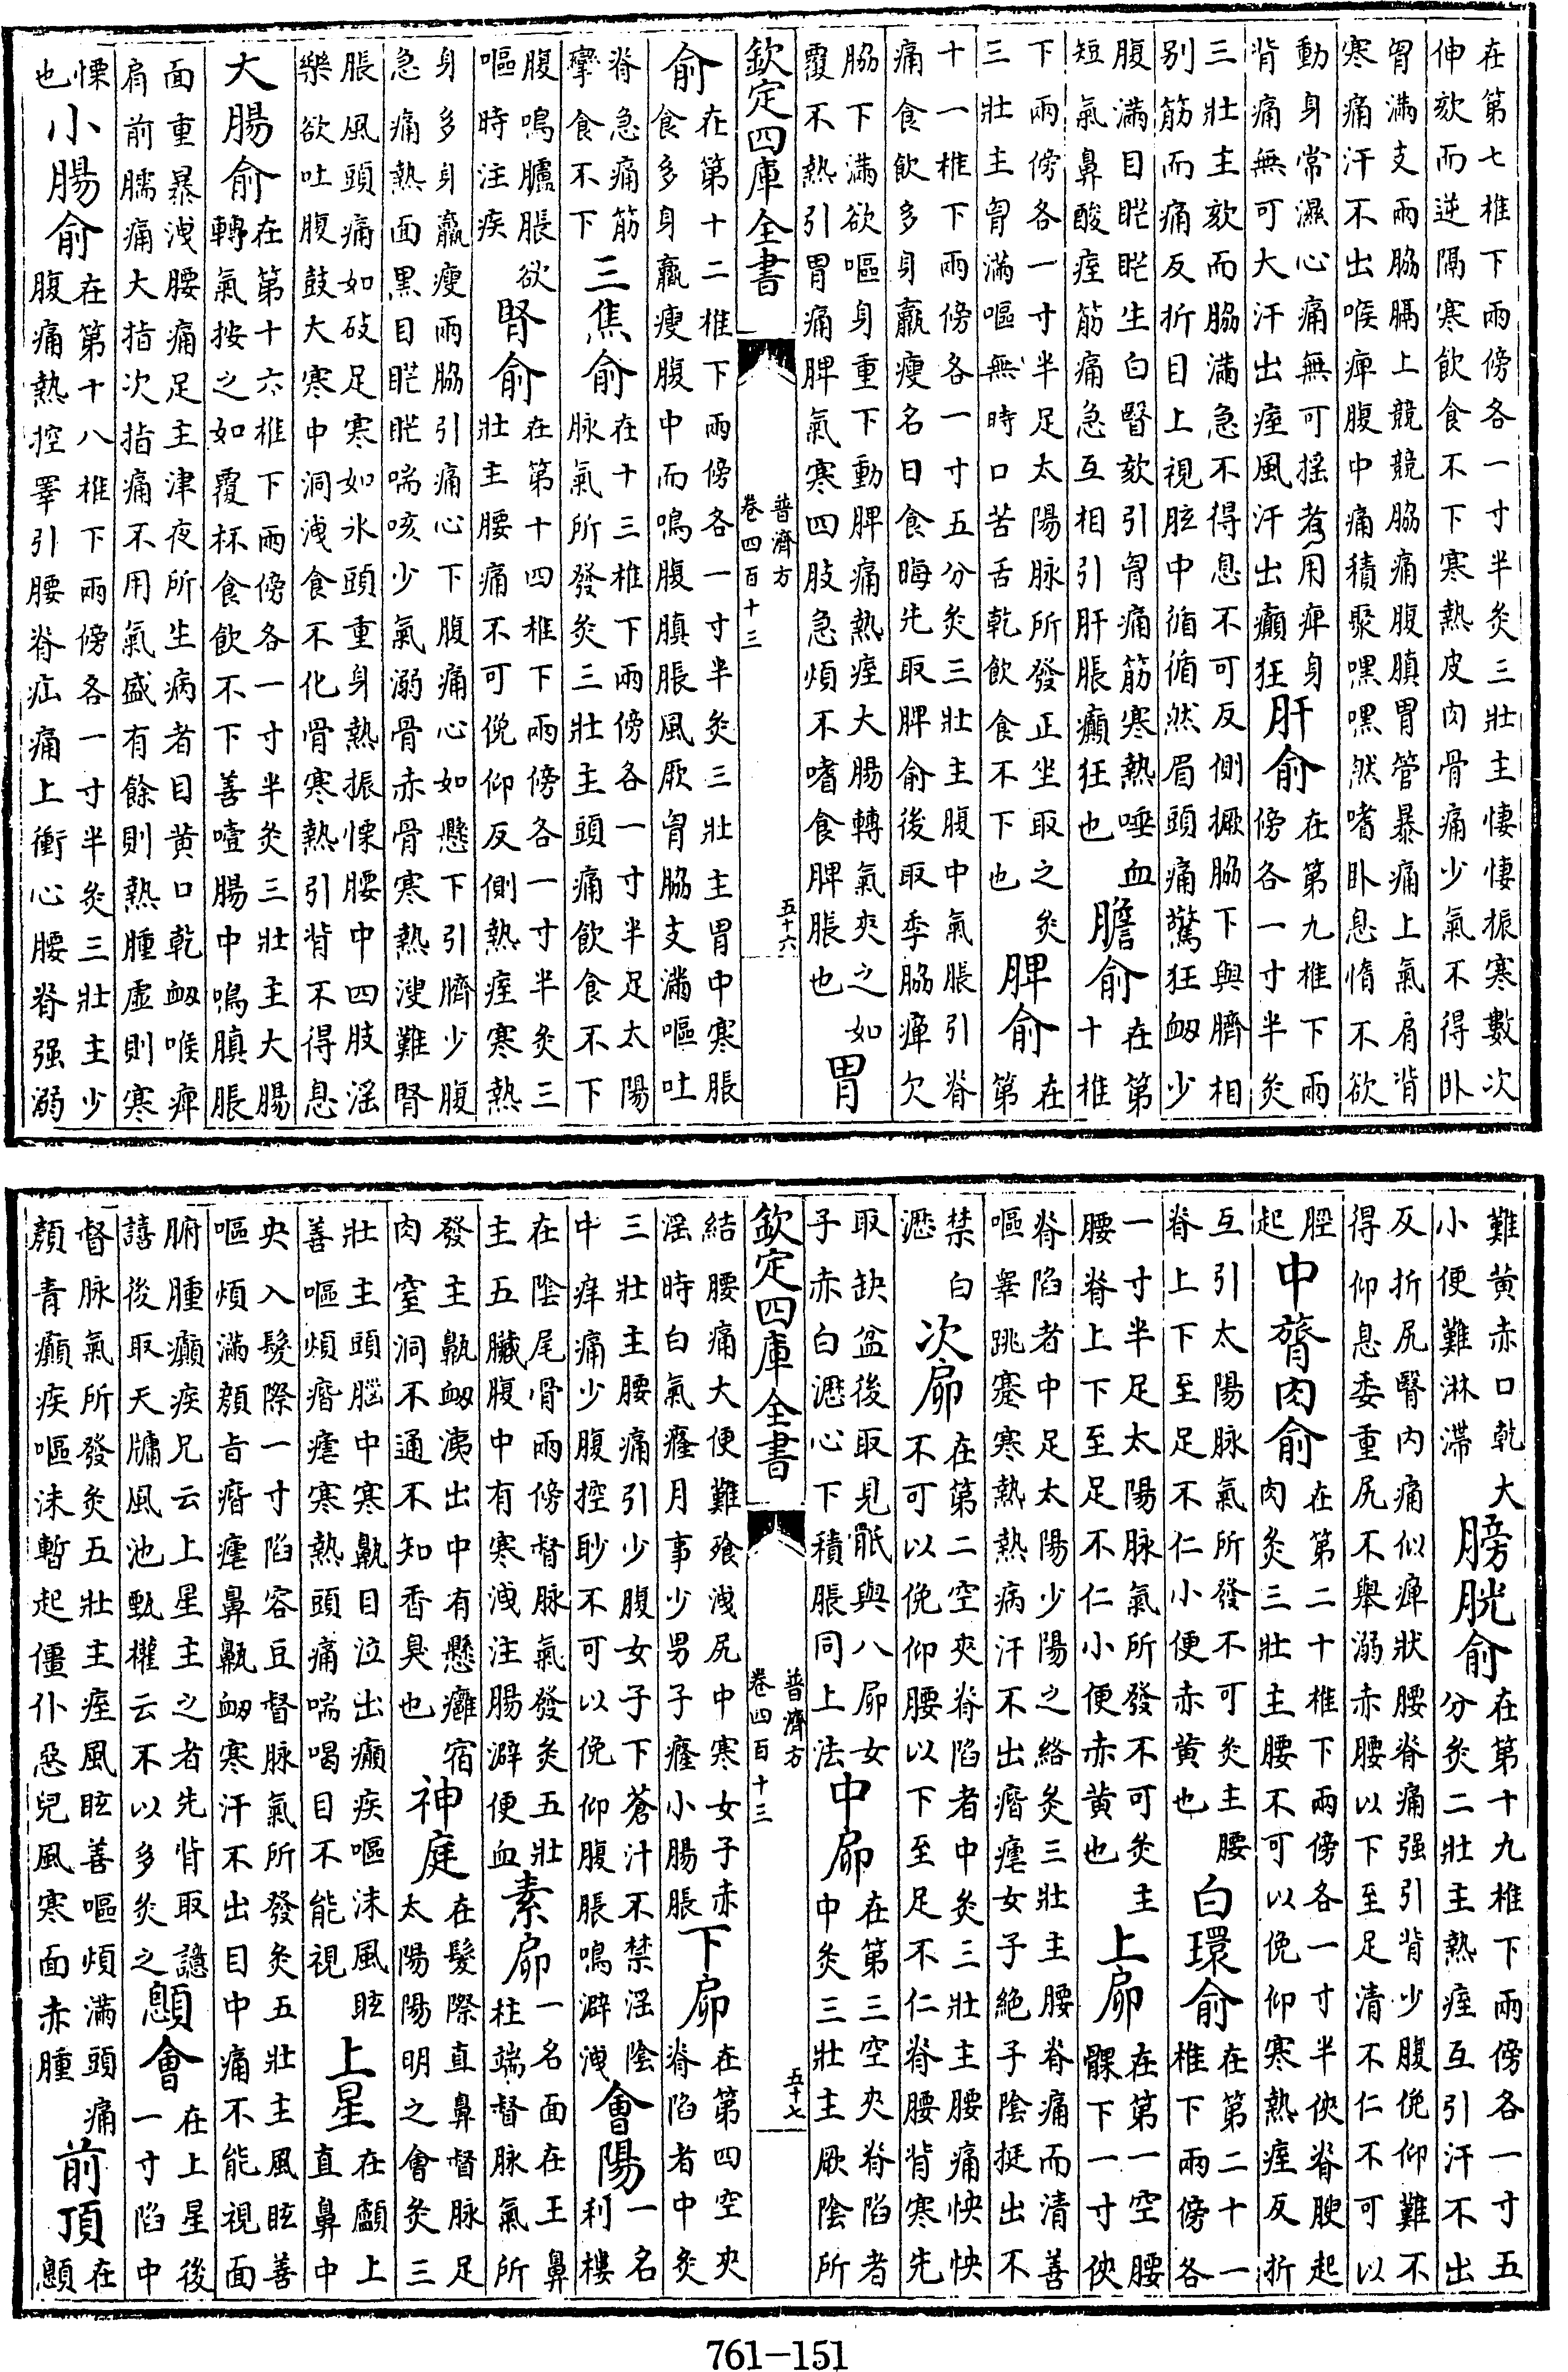 在第七椎下兩傍各一寸半灸三壯主悽悽振寒數次
伸欬而逆隔寒飲食不下寒熱皮肉骨痛少氣不得卧
胷滿支兩脇膈上競競脇痛腹䐜胃管暴痛上氣肩背
寒痛汗不出喉痺腹中痛積聚嘿嘿然嗜卧怠惰不欲
動身常濕心痛無可搖者用痺身
背痛無可大汗出痓風汗出癲狂
肝俞
在第九椎下兩
傍各一寸半灸
三壯主欬而脇滿急不得息不可反側撅脇下與臍相
别筋而痛反折目上視眩中循循然眉頭痛驚狂衂少
腹滿目䀮䀮生白翳欬引胷痛筋寒熱唾血
短氣鼻酸痓筋痛急互相引肝脹癲狂也
膽俞
在第
十椎
下兩傍各一寸半足太陽脉所發正坐取之灸
三壯主胷滿嘔無時口苦舌乾飲食不下也
脾俞
在
第
十一椎下兩傍各一寸五分灸三壯主腹中氣脹引脊
痛食飲多身羸瘦名曰食晦先取脾俞後取季脇痺欠
脇下滿欲嘔身重下動脾痛熱痓大腸轉氣夾之如
覆不熱引胃痛脾氣寒四肢急煩不嗜食脾脹也
胃
欽定四庫全書
普濟方
卷四百十三
五十六
俞
在第十二椎下兩傍各一寸半灸三壯主胃中寒脹
食多身羸瘦腹中而鳴腹䐜脹風厥胷脇支滿嘔吐
脊急痛筋
攣食不下
三焦俞
在十三椎下兩傍各一寸半足太陽
脉氣所發灸三壯主頭痛飲食不下
腹鳴臚脹欲
嘔時注疾
腎俞
在第十四椎下兩傍各一寸半灸三
壯主腰痛不可俛仰反側熱痓寒熱
身多身羸瘦兩脇引痛心下腹痛心如懸下引臍少腹
急痛熱面黑目䀮䀮喘咳少氣溺骨赤骨寒熱溲難腎
脹風頭痛如破足寒如氷頭重身熱振慄腰中四肢滛
樂欲吐腹鼓大寒中洞洩食不化骨寒熱引背不得息
大腸俞
在第十六椎下兩傍各一寸半灸三壯主大腸
轉氣按之如覆杯食飲不下善噎腸中鳴䐜脹
面重暴洩腰痛足主津夜所生病者目黄口乾衂喉痺
肩前臑痛大指次指痛不用氣盛有餘則熱腫虚則寒
慄
也
小腸俞
在第十八椎下兩傍各一寸半灸三壯主少
腹痛熱控睪引腰脊疝痛上衝心腰脊强溺
難黄赤口乾大
小便難淋滯
膀胱俞
在第十九椎下兩傍各一寸五
分灸二壯主熱痓互引汗不出
反折尻腎内痛似痺狀腰脊痛强引背少腹俛仰難不
得仰息委重尻不舉溺赤腰以下至足清不仁不可以
脛
起
中膂肉俞
在第二十椎下兩傍各一寸半俠脊腴起
肉灸三壯主腰不可以俛仰寒熱痓反折
互引太陽脉氣所發不可灸主腰
脊上下至足不仁小便赤黄也
白環俞
在第二十一
椎下兩傍各
一寸半足太陽脉氣所發不可灸主
腰脊上下至足不仁小便赤黄也
上䯊
在第一空腰
髁下一寸俠
脊陷者中足太陽少陽之絡灸三壯主腰脊痛而清善
嘔睪跳蹇寒熱病汗不出痎瘧女子絶子陰挺出不
禁白
瀝
次䯊
在第二空夾脊陷者中灸三壯主腰痛怏怏
不可以俛仰腰以下至足不仁脊腰背寒先
取缺盆後取見骶與八䯊女
子赤白瀝心下積脹同上法
中䯊
在第三空夾脊陷者
中灸三壯主厥陰所
欽定四庫全書
普濟方
卷四百十三
五十七
結腰痛大便難飱洩尻中寒女子赤
滛時白氣癃月事少男子癃小腸脹
下䯊
在第四空夾
脊陷者中灸
三壯主腰痛引少腹女子下蒼汁不禁滛陰
中痒痛少腹控䏚不可以俛仰腹脹鳴澼洩
會陽
一名
利機
在陰尾骨兩傍督脉氣發灸五壯
主五臟腹中有寒洩注腸澼便血
素䯊
一名面在王鼻
柱端督脉氣所
發主鼽衂洟出中有懸癰宿
肉窒洞不通不知香臭也
神庭
在髮際直鼻督脉足
太陽陽明之會灸三
壯主頭腦中寒鼽目泣出癲疾嘔沫風眩
善嘔煩痎瘧寒熱頭痛喘喝目不能視
上星
在顱上
直鼻中
央入髮際一寸陷容豆督脉氣所發灸五壯主風眩善
嘔煩滿顔旨痎瘧鼻鼽衂寒汗不出目中痛不能視面
腑腫癲疾兄云上星主之者先背取譩
譆後取天牖風池甄權云不以多灸之
顖會
在上星後
一寸陷中
督脉氣所發灸五壯主痓風眩善嘔煩滿頭痛
顔青癲疾嘔沫暫起僵仆惡兒風寒面赤腫
前頂
在
顖
761-151